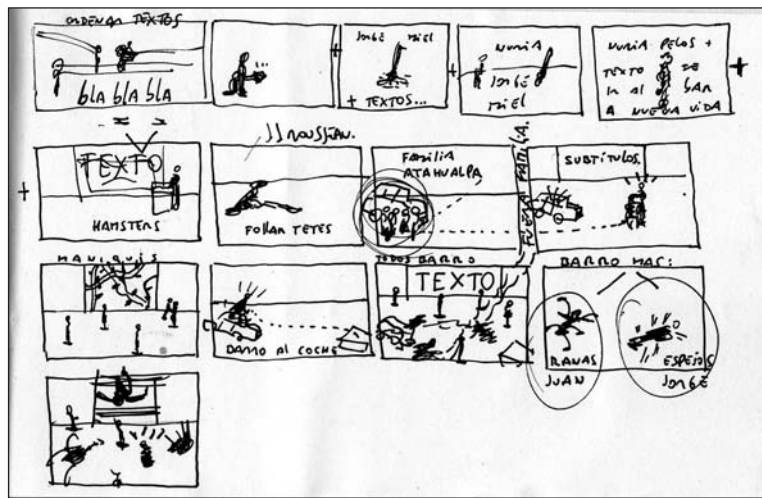 ORDENAR TEXTOS
bLA bLA bLA
JORGE MIEL
+ TEXTOS...
NURIA
JORGE
MIEL
NURIA PELOS +
TEXTO DE
IR AL BAR
A NUEVA VIDA
TEXTO
HAMSTERS
JJ ROUSSEAU.
FOLLAR TETES
FAMILIA
ATAHUALPA
FUERA FAMILIA.
SUBTÍTULOS.
MANIQUIS
BARRO AL COCHE
TODOS BARRO
TEXTO
BARRO MAC:
RANAS
JUAN
ESPEJOS
JORGE